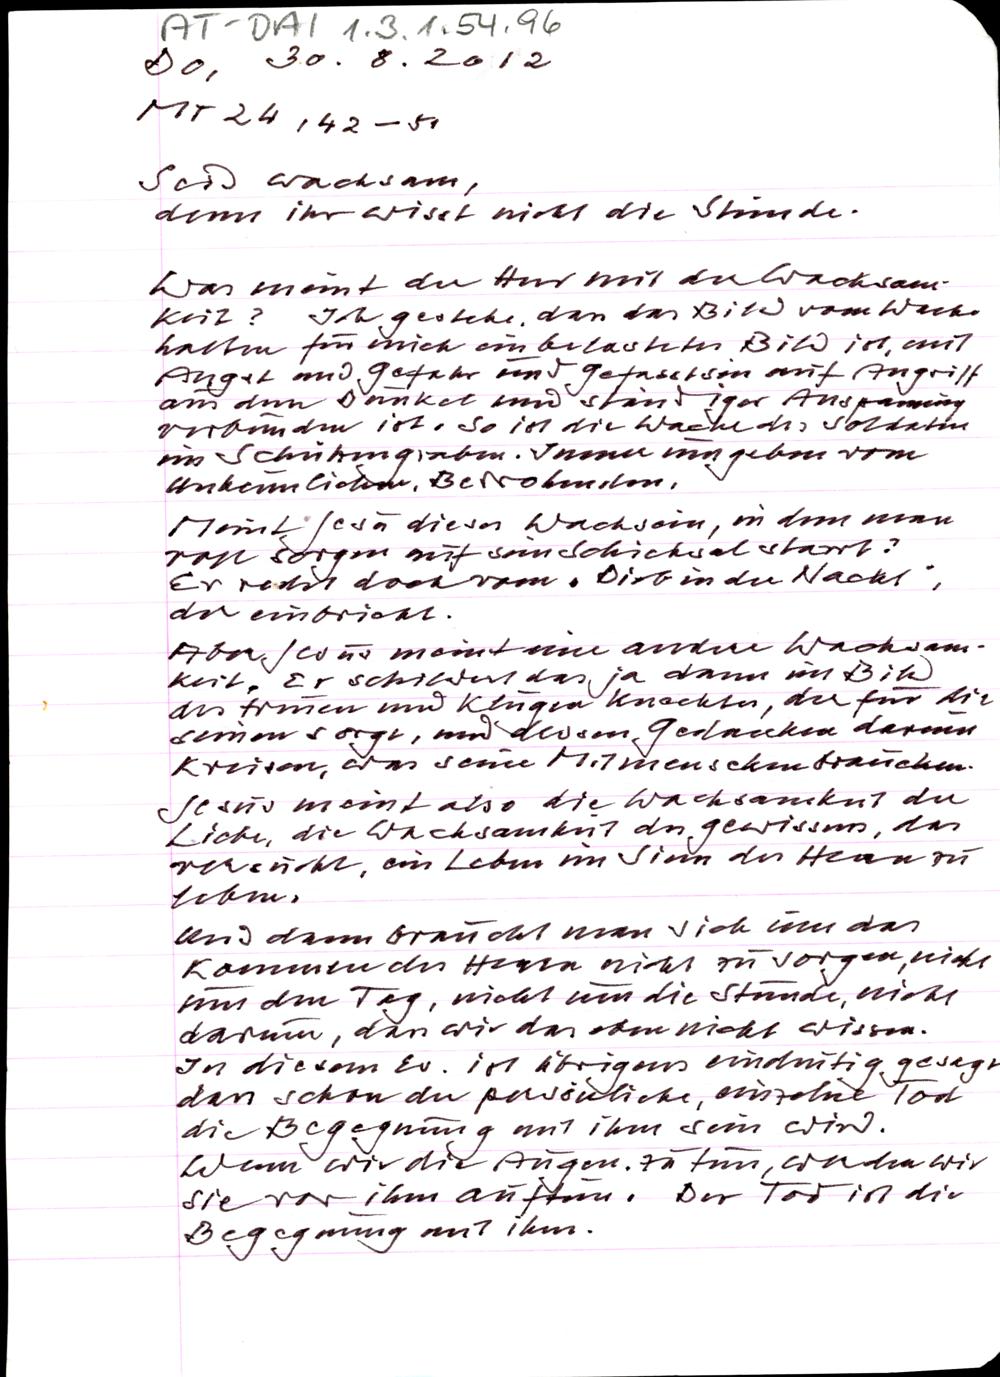 AT-DAI 1.3.1.54.96
Do, 30.8.2012
MT 24,42-51
Seid wachsam,
denn ihr wisset nicht die Stunde.
Was meint der Herr mit der Wachsam-
keit? Ich gestehe, dass das Bild vom Wache
halten für mich ein belastetes Bild ist, mit
Angst und Gefahr und Gefasstsein auf Angriff
aus dem Dunkel und ständiger Anspannung
verbunden ist. So ist die Wache des Soldaten
im Schützengraben. Immer umgeben vom
Unheimlichen, Bedrohenden.
Meint Jesu dieses Wachsein, in dem man
voll Sorgen auf sein Schicksal starrt?
Er redet doch vom "Dieb in der Nacht",
der einbricht.
Aber Jesus meint eine andere Wachsam-
keit. Er schildert das ja dann im Bild
des treuen und klugen Knechtes, der für die
seinen sorgt, und dessen Gedanken darum
kreisen, was seine Mitmenschen brauchen.
Jesus meint also die Wachsamkeit der
Liebe, die Wachsamkeit des Gewissens, das
versucht, ein Leben im Sinn des Herrn zu
leben.
Und dann braucht man sich um das
Kommen des Herrn nicht zu sorgen, nicht
um den Tag, nicht um die Stunde, nicht
darum, dass wir das eben nicht wissen.
In diesem Ev. ist übrigens eindeutig gesagt
dass schon der persönliche, einzelne Tod
die Begegnung mit ihm sein wird.
Wenn wir die Augen zu tun, werden wir
sie vor ihm auftun. Der Tod ist die
Begegnung mit ihm.